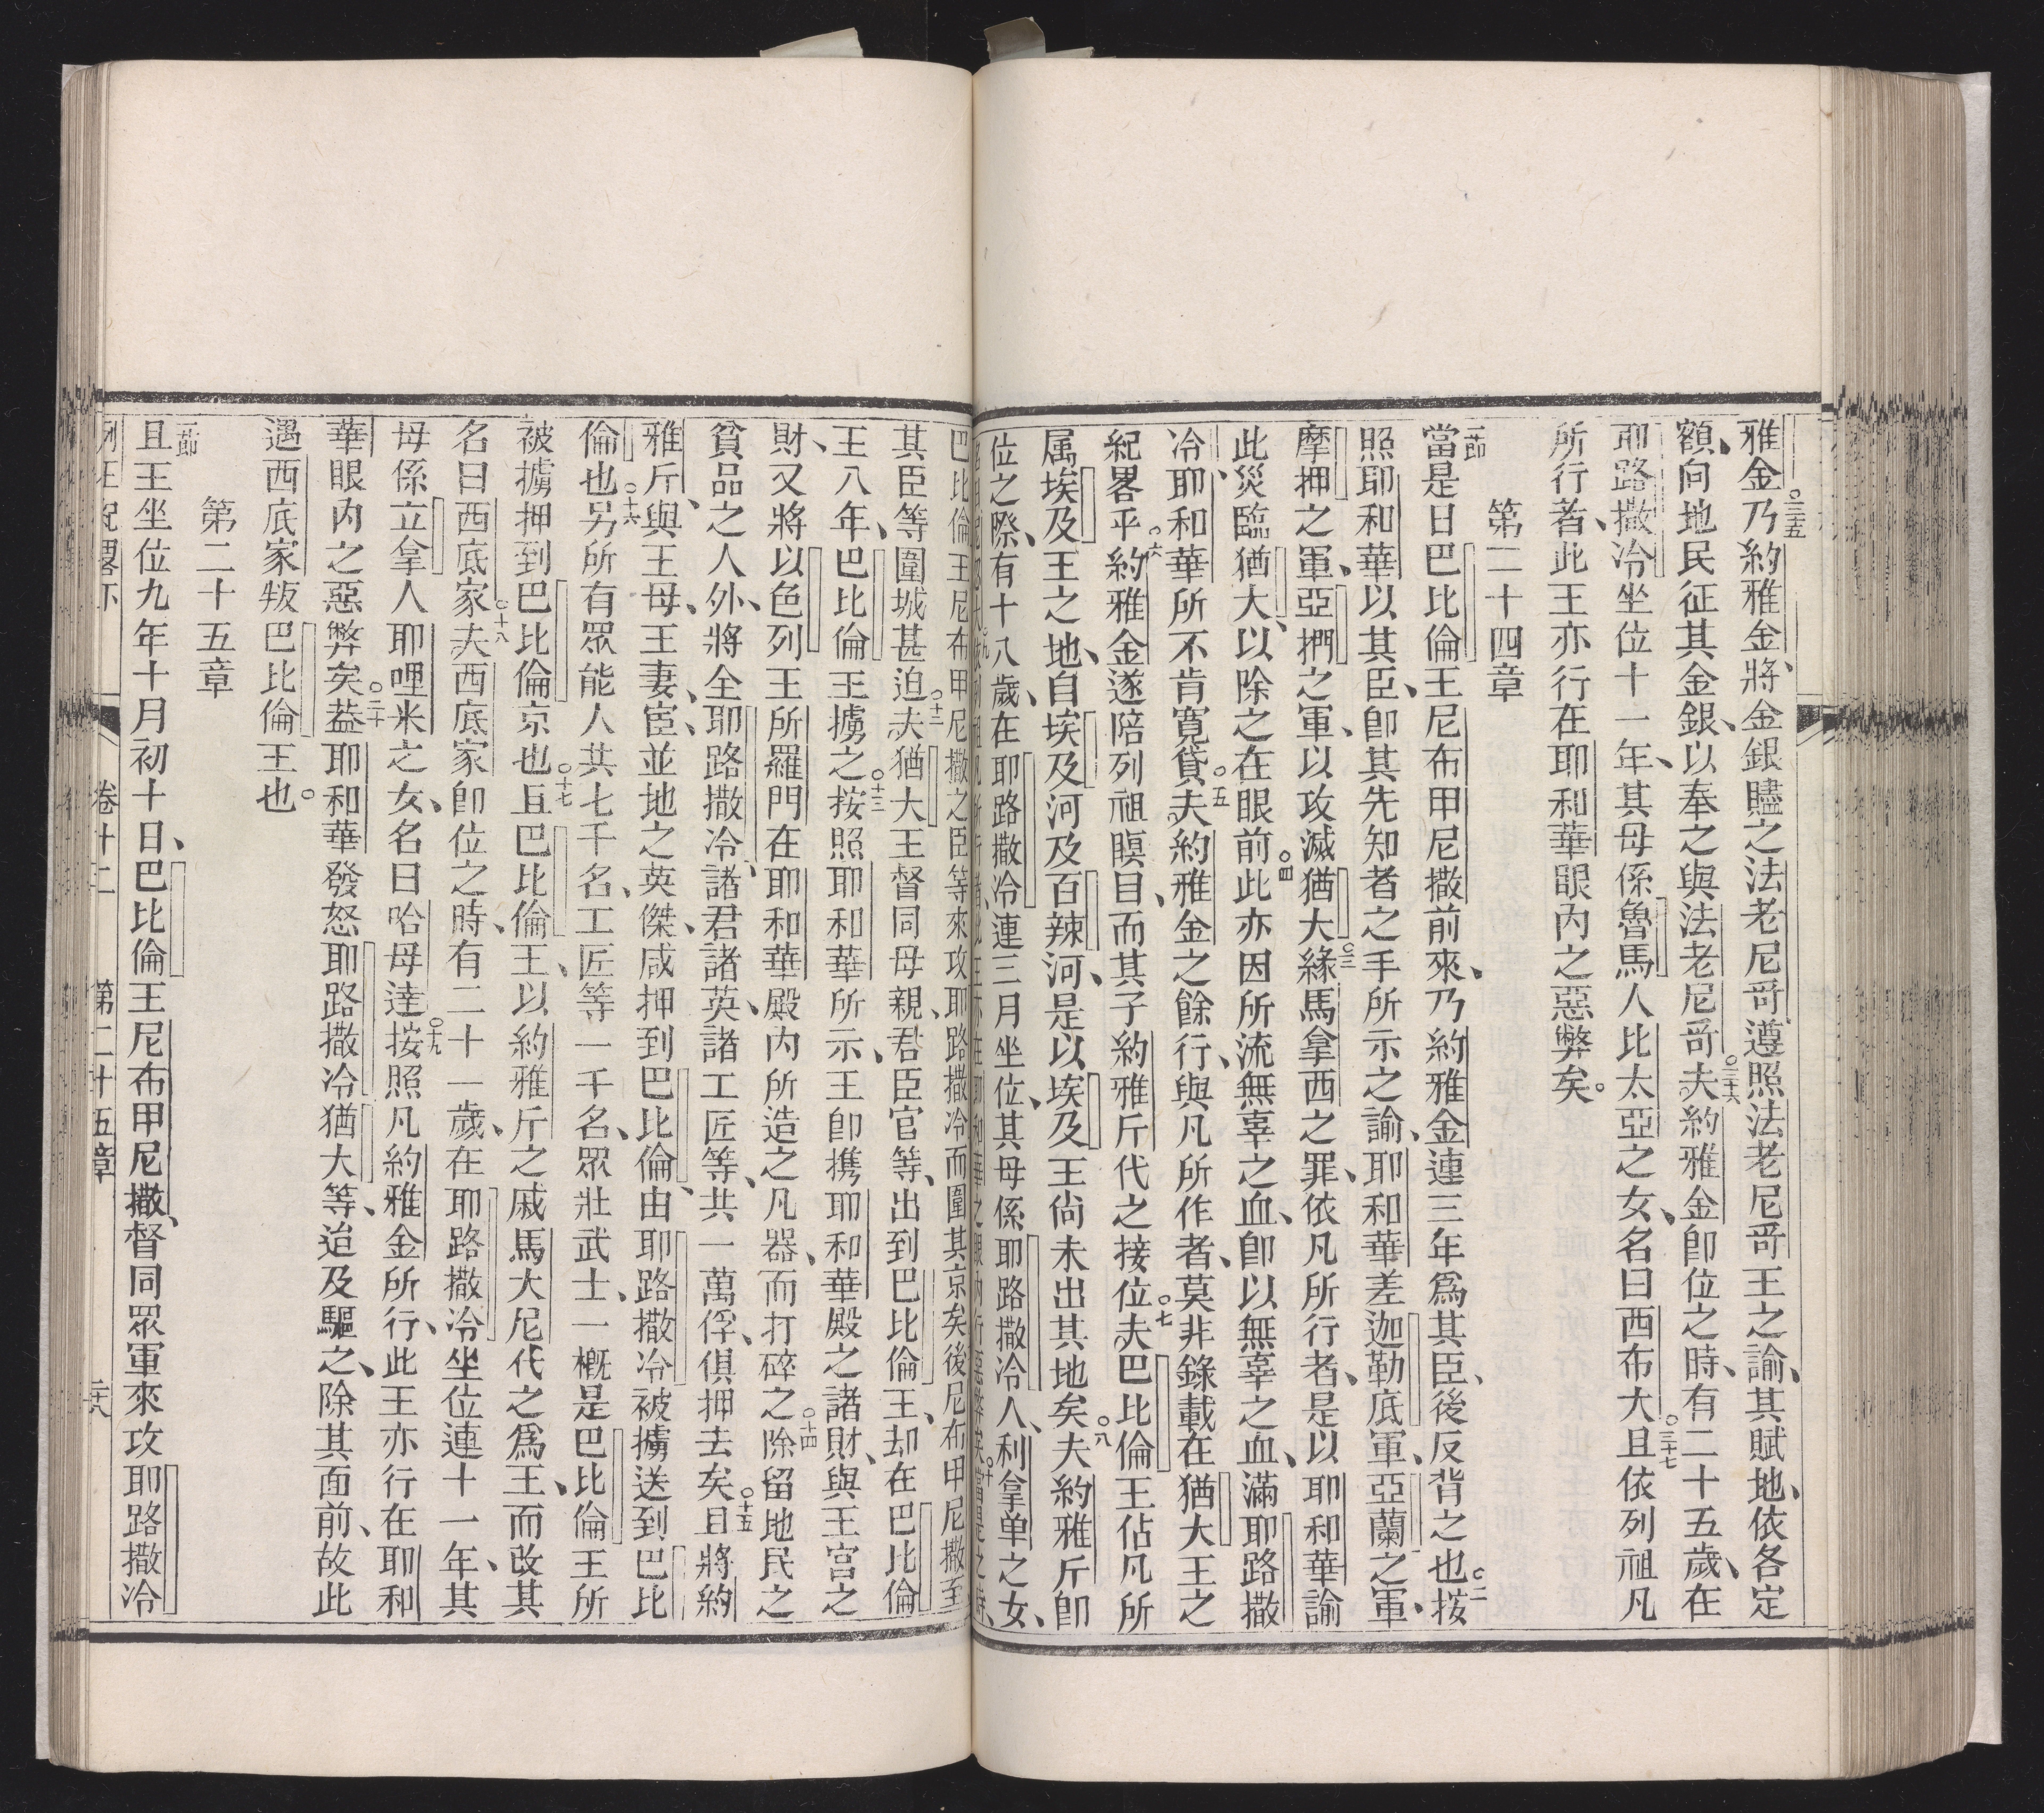 雅金〇三十五乃約雅金、將金銀贐之法老尼哥遵照法老尼哥王之諭、其賦地、依各定
額、向地民征其金銀、以奉之與法老尼哥〇三十六夫約雅金卽位之時、有二十五歲、在
耶路撒冷坐位十一年、其母係魯馬人比太亞之女、名曰西布大〇三十七且依列祖凡
所行者、此王亦行在耶和華眼內之惡弊矣。
第二十四章
一節當是日巴比倫王尼布甲尼撒前來、乃約雅金連三年爲其臣、後反背之也〇二按
照耶和華以其臣、卽其先知者之手所示之諭、耶和華差迦勒底軍、亞蘭之軍、
摩押之軍、亞捫之軍、以攻滅猶大〇三緣馬拿西之罪、依凡所行者、是以耶和華諭
此災臨猶大、以除之在眼前〇四此亦因所流無辜之血、卽以無辜之血、滿耶路撒
冷、耶和華所不肯寬貸〇五夫約雅金之餘行、與凡所作者、莫非錄載在猶大王之
紀畧乎〇六約雅金遂陪列祖瞑目、而其子約雅斤代之接位〇七夫巴比倫王佔凡所
属埃及王之地、自埃及河及百辣河、是以埃及王尙未出其地矣〇八夫約雅斤卽
位之際、有十八歲、在耶路撒冷連三月坐位、其母係耶路撒冷人、利拿单之女、
巴比倫王尼布甲尼撒之臣等來攻耶路撒冷而圍其京矣後尼布甲尼撒至
其臣等圍城甚迫〇十二夫猶大王督同母親、君臣官等、出到巴比倫王、却在巴比倫
王八年、巴比倫王擄之〇十三按照耶和華所示、王卽携耶和華殿之諸財、與王宮之
財、又將以色列王所羅門在耶和華殿內所造之凡器、而打碎之〇十四除留地民之
貧品之人外、將全耶路撒冷、諸君諸英、諸工匠等、共一萬俘、俱押去矣〇十五且將約
雅斤、與王母、王妻、宦、並地之英傑、咸押到巴比倫、由耶路撒冷被擄送到巴比
倫也〇十六另所有眾能人共七千名、工匠等一千名、眾壯武士、一槪是巴比倫王所
被擄押到巴比倫京也〇十七且巴比倫王、以約雅斤之戚馬大尼代之爲王、而改其
名曰西底家〇十八夫西底家卽位之時、有二十一歲、在耶路撒冷坐位連十一年、其
母係立拿人耶哩米之女、名曰哈母達〇十九按照凡約雅金所行、此王亦行在耶和
華眼內之惡弊矣〇二十益耶和華發怒耶路撒冷猶大等、迨及驅之、除其面前、故此
遇西底家叛巴比倫王也。
第二十五章
一節且王坐位九年十月初十日、巴比倫王尼布甲尼撒、督同眾軍來攻耶路撒冷
卷十二 第二十五章